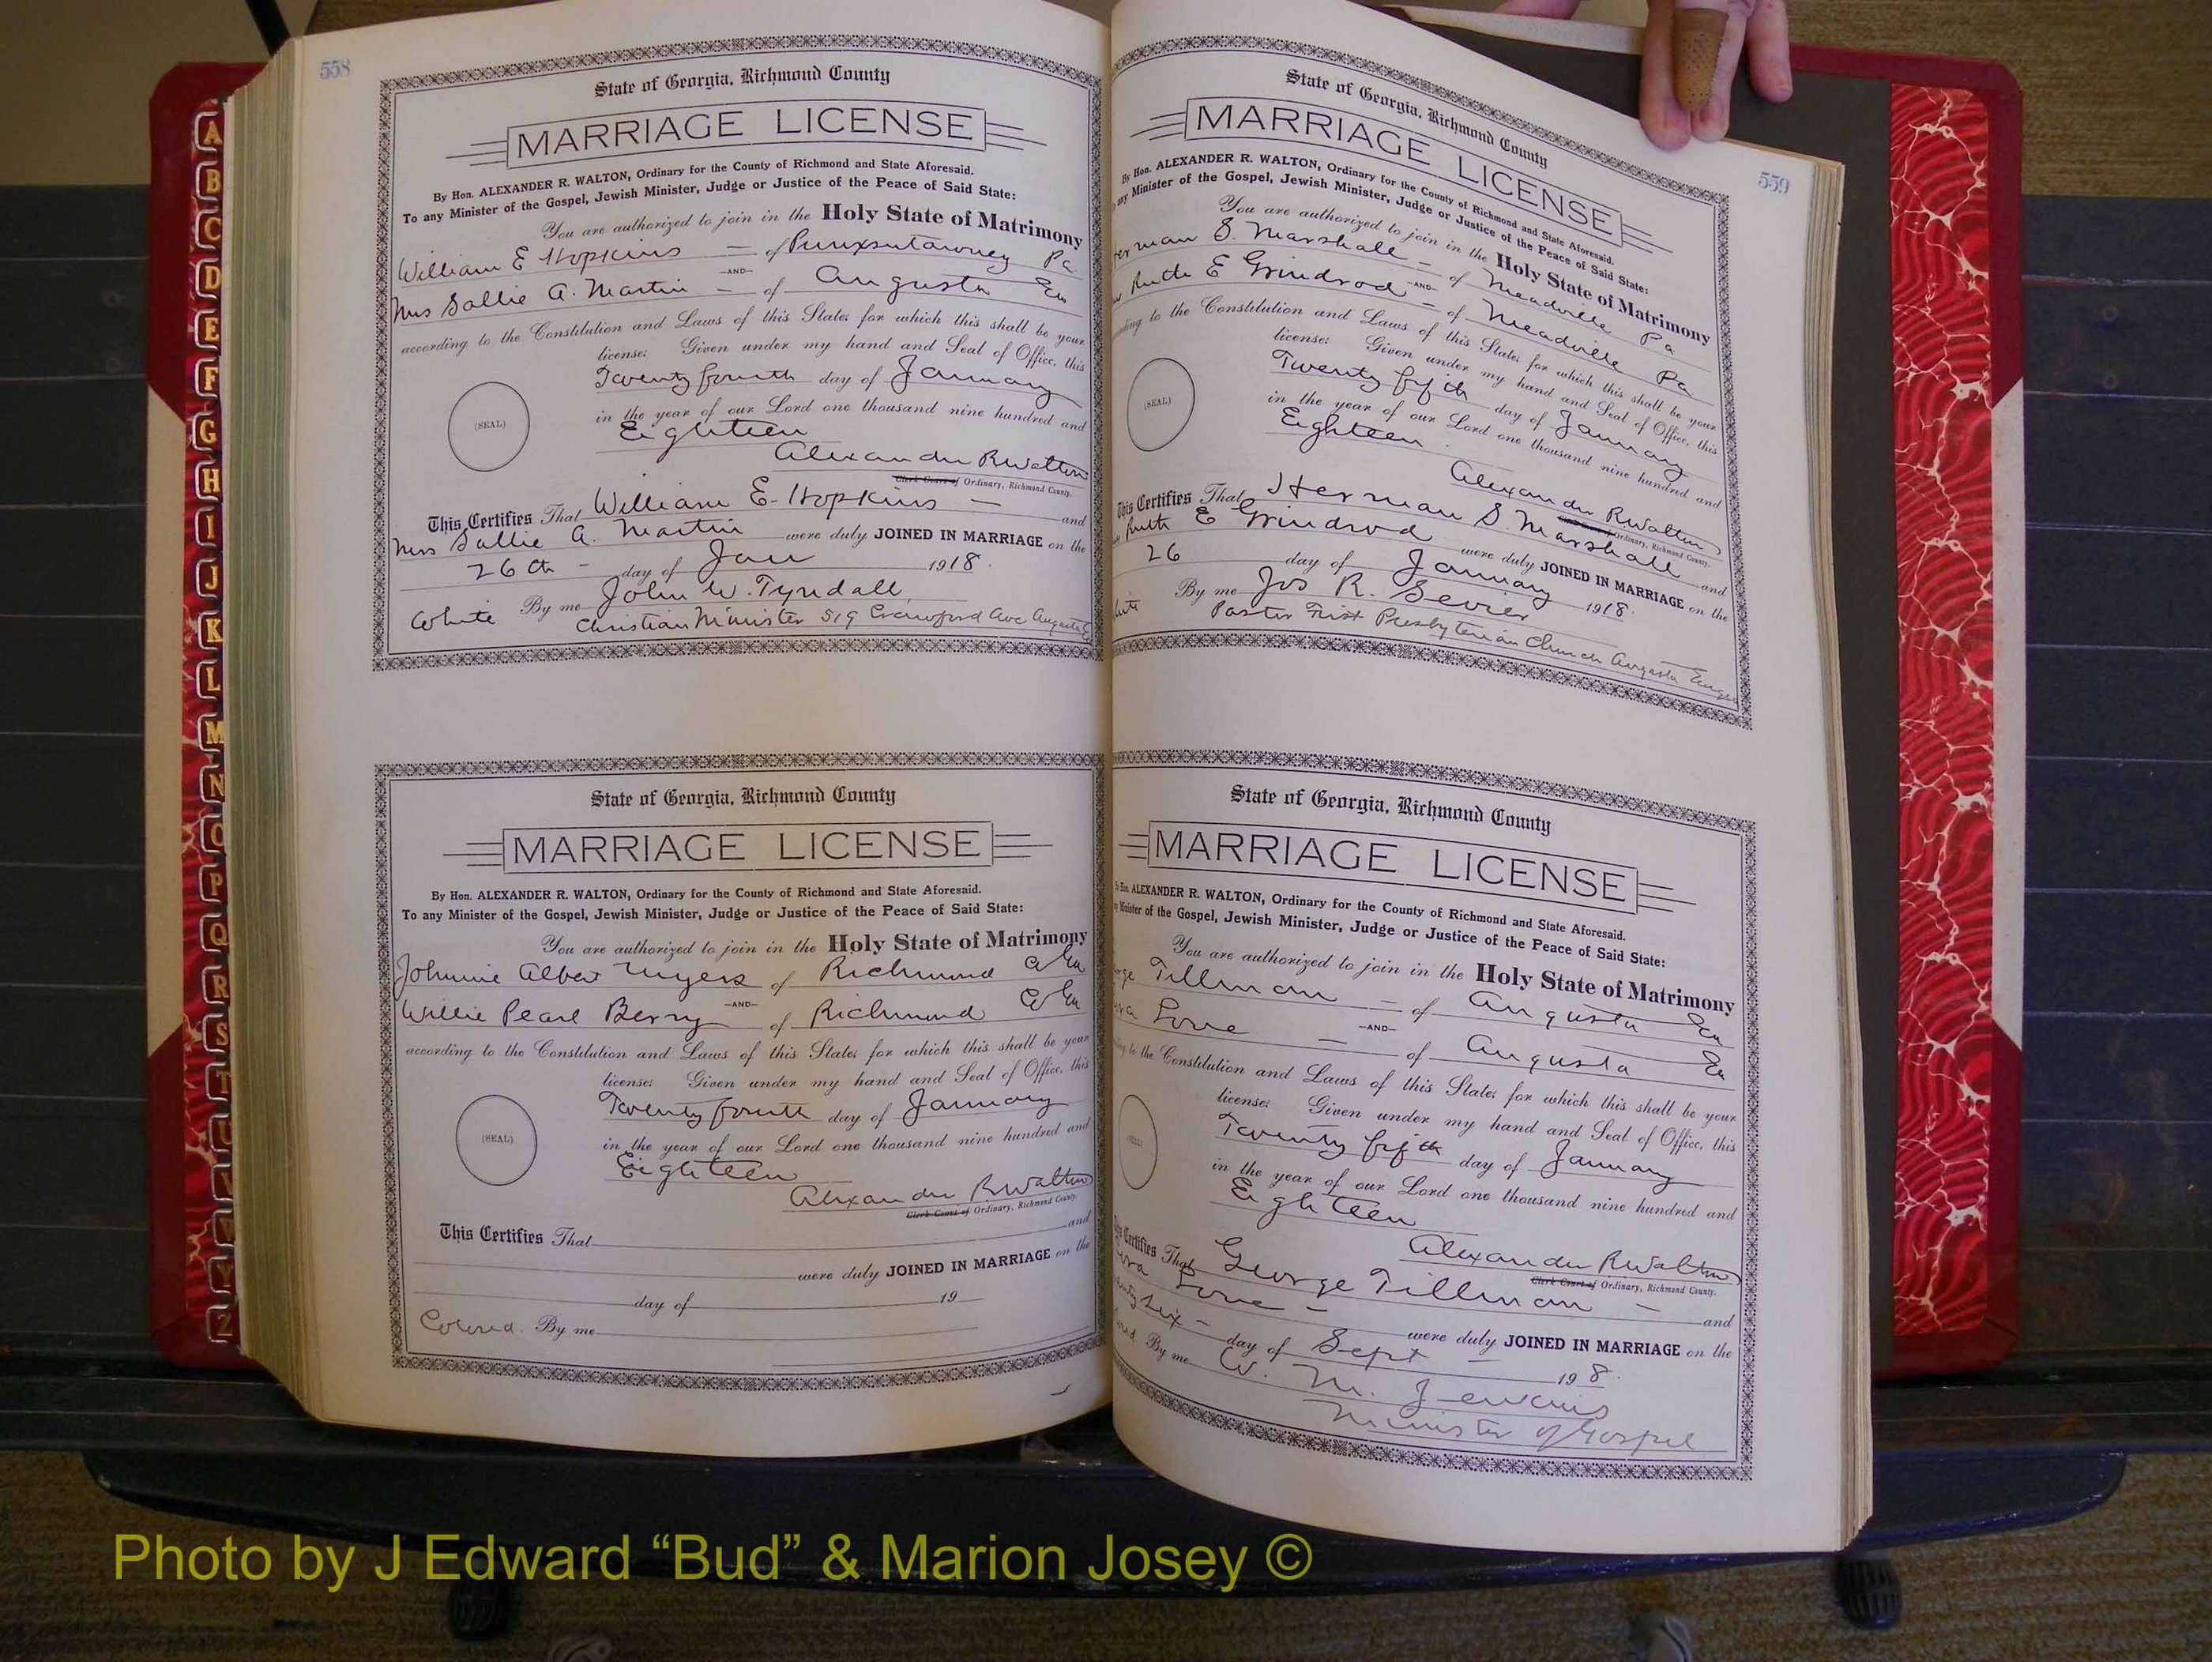 558
State of Georgia, Richmond County
MARRIAGE LICENSE
By Hon. ALEXANDER R. WALTON, Ordinary for the County of Richmond and State Aforesaid.
To any Minister of the Gospel, Jewish Minister, Judge or Justice of the Peace of Said State:
You are authorized to join in the Holy State of Matrimony
William E Hopkins — of Punxsutawney Pa
—AND—
Mrs Sallie A. Martin — of Augusta Ga
according to the Constitution and Laws of this State; for which this shall be your
license: Given under my hand and Seal of Office, this
Twenty fourth day of January
(SEAL)
in the year of our Lord one thousand nine hundred and
Eighteen
Alexander R Walton
Clerk Court of Ordinary, Richmond County.
This Certifies That William E. Hopkins — and
Mrs Sallie A. Martin were duly JOINED IN MARRIAGE on the
26th — day of Jan 1918.
White By me John W. Tyndall,
Christian Minister 519 Crawford Ave Augusta
State of Georgia, Richmond County
MARRIAGE LICENSE
By Hon. ALEXANDER R. WALTON, Ordinary for the County of Richmond and State Aforesaid.
To any Minister of the Gospel, Jewish Minister, Judge or Justice of the Peace of Said State:
You are authorized to join in the Holy State of Matrimony
Johnnie Albert Myers of Richmond Co Ga
—AND—
Willie Pearl Berry of Richmond Co Ga
according to the Constitution and Laws of this State; for which this shall be your
license: Given under my hand and Seal of Office, this
Twenty fourth day of January
(SEAL)
in the year of our Lord one thousand nine hundred and
Eighteen
Alexander R. Walton
Clerk Court of Ordinary, Richmond County.
This Certifies That and
were duly JOINED IN MARRIAGE on the
day of 19
Colored. By me
559
State of Georgia, Richmond County
MARRIAGE LICENSE
By Hon. ALEXANDER R. WALTON, Ordinary for the County of Richmond and State Aforesaid.
any Minister of the Gospel, Jewish Minister, Judge or Justice of the Peace of Said State:
You are authorized to join in the Holy State of Matrimony
erman S. Marshall — of Meadville Pa
—AND—
Ruth E Grindrod — of Meadville Pa
ording to the Constitution and Laws of this State; for which this shall be your
license: Given under my hand and Seal of Office, this
Twenty fifth day of January
(SEAL)
in the year of our Lord one thousand nine hundred and
Eighteen
Alexander R Walton
Ordinary, Richmond County.
This Certifies That Herman S. Marshall and
Ruth E Grindrod were duly JOINED IN MARRIAGE on the
26 day of January 1918.
ite By me Jos R. Sevier
Pastor First Presbyterian Church Augusta
State of Georgia, Richmond County
MARRIAGE LICENSE
By Hon. ALEXANDER R. WALTON, Ordinary for the County of Richmond and State Aforesaid.
Minister of the Gospel, Jewish Minister, Judge or Justice of the Peace of Said State:
You are authorized to join in the Holy State of Matrimony
rge Tillman — of Augusta Ga
—AND—
Love — of Augusta Ga
to the Constitution and Laws of this State; for which this shall be your
license: Given under my hand and Seal of Office, this
Twenty fifth day of January
(SEAL)
in the year of our Lord one thousand nine hundred and
Eighteen
Alexander R Walton
Clerk Court of Ordinary, Richmond County.
Certifies That George Tillman — and
Love — were duly JOINED IN MARRIAGE on the
six — day of Sept — 19 8.
By me W. M. Jenkins
Minister of Gospel
A
B
C
D
E
F
G
H
I
J
K
L
M
N
O
P
Q
R
S
T
U
V
W
Y
Z
Photo by J Edward “Bud” & Marion Josey ©